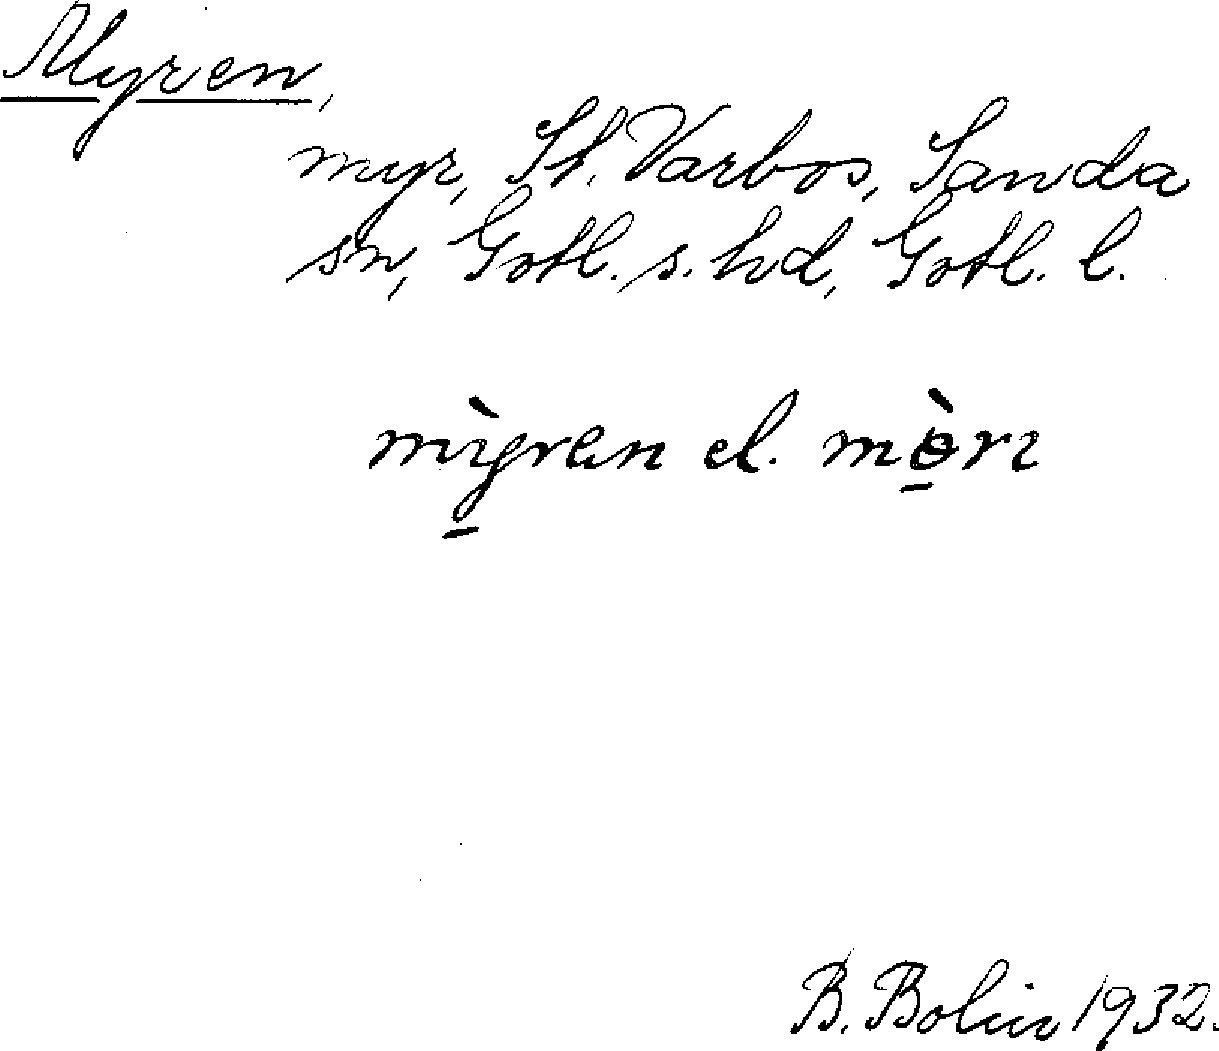 Myren,
myr, St. Varbos, Sanda
sn, Gotl. s. hd, Gotl. l.
el.
B. Bolin 1932.